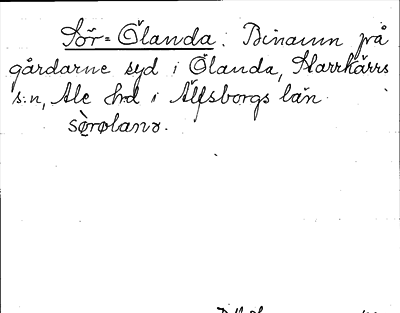 Sör-Ölanda: Binamn på
gårdarne syd i Ölanda, Starrkärrs
s:n, Ale hrd i Älfsborgs län.
sørøland.